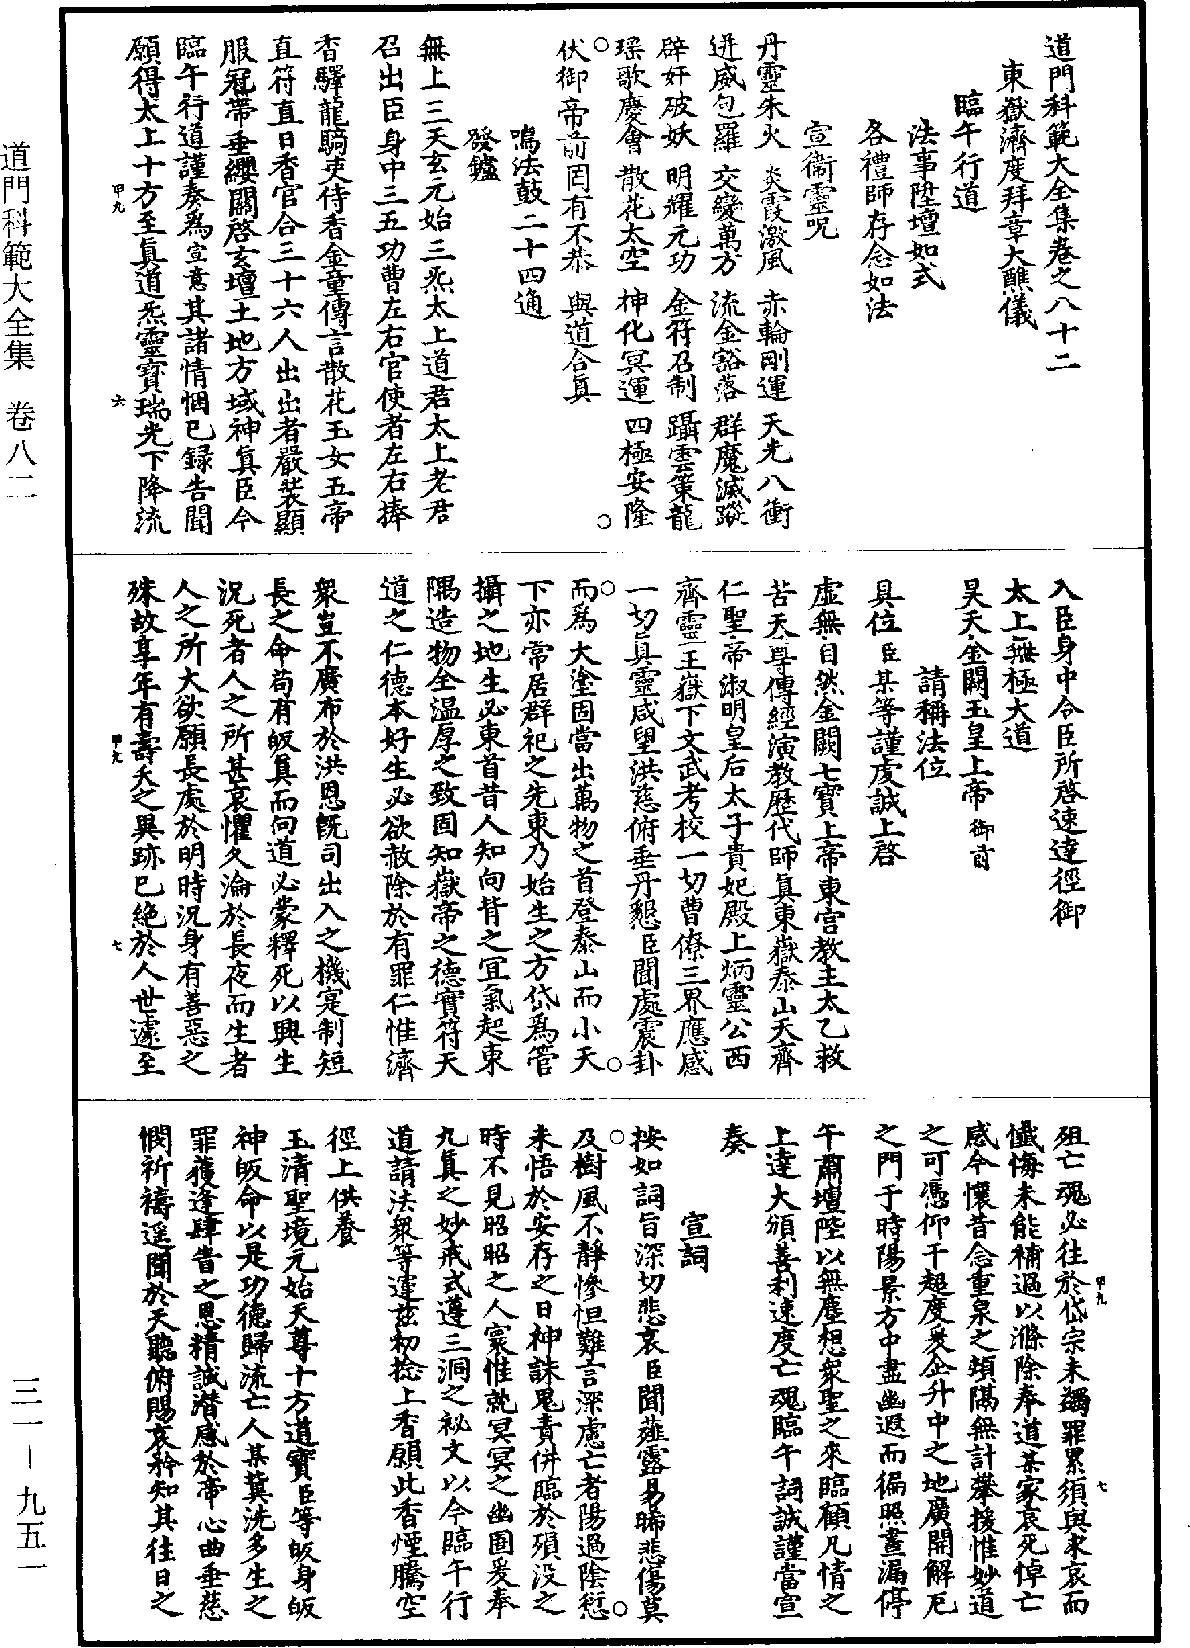 道門科範大全集卷之八十二
東嶽濟度拜章大醮儀
臨午行道
法事陞壇如式
各禮師存念如法
宣衞靈呪
丹靈朱火　炎霞激風　赤輪剛運　天光八衝
迸威勻羅　交變萬方　流金豁落　群魔滅蹤
辟奸破妖　明耀元功　金符召制　躡雲策龍
瑤歌慶會　散花太空　神化冥運　四極安隆
○伏御帝前　罔有不恭　與道合真○
鳴法鼓二十四通
發鑪
無上三天玄元始三炁太上道君太上老君
召出臣身中三五功曹左右官使者左右捧
香驛龍騎吏侍香金童傳言散花玉女五帝
直符直日香官合三十六人出出者嚴裝顯
服冠帶垂纓關啓玄壇土地方域神真臣今
臨午行道謹奏爲宣意其諸情悃已錄告聞
願得太上十方至真道炁靈寶瑞光下降流
甲九　六
入臣身中令臣所啓速達徑御
太上無極大道
昊天金闕玉皇上帝御前
請稱法位
具位臣某等謹虔誠上啓
虛無自然金闕七寶上帝東宮教主太乙救
苦天尊傳經演教歷代師真東嶽泰山天齊
仁聖帝淑明皇后太子貴妃殿上炳靈公西
齊靈王嶽下文武考校一切曹僚三界應感
一切真靈咸望洪慈俯垂丹懇臣聞處震卦
○而爲大塗固當出萬物之首登泰山而小天○
下亦常居群祀之先東乃始生之方岱爲管
攝之地生必東首昔人知向背之宜氣起東
隅造物全溫厚之致固知嶽帝之德實符天
道之仁德本好生必欲赦除於有罪仁惟濟
衆豈不廣布於洪恩旣司出入之機寔制短
長之命苟有皈真而向道必蒙釋死以興生
況死者人之所甚哀懼久淪於長夜而生者
人之所大欲願長處於明時況身有善惡之
殊故享年有壽夭之異跡已絶於人世遽至
甲九　七
殂亡魂必往於岱宗未蠲罪累須與求哀而
懺悔未能補過以滌除奉道某家哀死悼亡
感今懷昔念重泉之頓隔無計攀援惟妙道
之可憑仰干超度爰企升中之地廣開解厄
之門于時陽景方中盡幽遐而徧照晝漏停
午肅壇陛以無塵想衆聖之來臨顧凡情之
上達大頒善利速度亡魂臨午詞誠謹當宣
奏
宣詞
按如詞旨深切悲哀臣聞薤露易晞悲傷莫
○及樹風不靜慘怛難言深慮亡者陽過陰愆○
未悟於安存之日神誅鬼責併臨於殞没之
時不見昭昭之人寰惟就冥冥之幽圄爰奉
九真之妙戒式遵三洞之祕文以今臨午行
道請法衆等運茲初捻上香願此香煙騰空
徑上供養
玉清聖境元始天尊十方道寶臣等皈身皈
神皈命以是功德歸流亡人某冀洗多生之
罪獲逢肆眚之恩精誠潛感於帝心曲垂慈
憫祈禱遥聞於天聽俯賜哀矜知其往日之
甲九　七
道門科範大全集　卷八二
三一－九五一